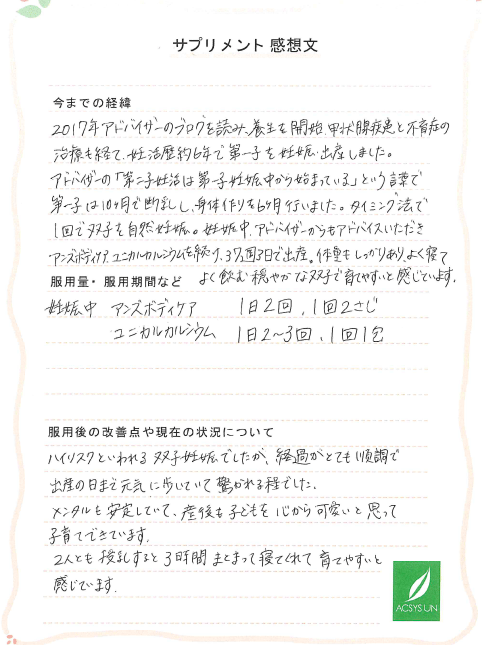 サプリメント 感想文
今までの経緯
2017年アドバイザーのブログを読み、養生を開始。甲状腺疾患と不育症の
治療も経て、妊活歴約6年で第一子を妊娠・出産しました。
アドバイザーの「第二子妊活は第一子妊娠中から始まっている」という言葉で
第一子は10ヶ月で断乳し、身体作りを6ヶ月行いました。タイミング法で
1回で双子を自然妊娠。妊娠中、アドバイザーからもアドバイスいただき
アンズボディケア、ユニカルカルシウムを続け、37週3日で出産。体重もしっかりあり、よく寝て
よく飲む穏やかな双子で育てやすいと感じています。
服用量・服用期間など
妊娠中 アンズボディケア 1日2回、1回2さじ
ユニカルカルシウム 1日2~3回、1回1包
服用後の改善点や現在の状況について
ハイリスクといわれる双子妊娠でしたが、経過がとても順調で
出産の日まで元気に歩いていて驚かれる程でした。
メンタルも安定していて、産後も子どもを心から可愛いと思って
子育てできています。
2人とも授乳すると3時間まとまって寝てくれて育てやすいと
感じています。
ACSYS UN